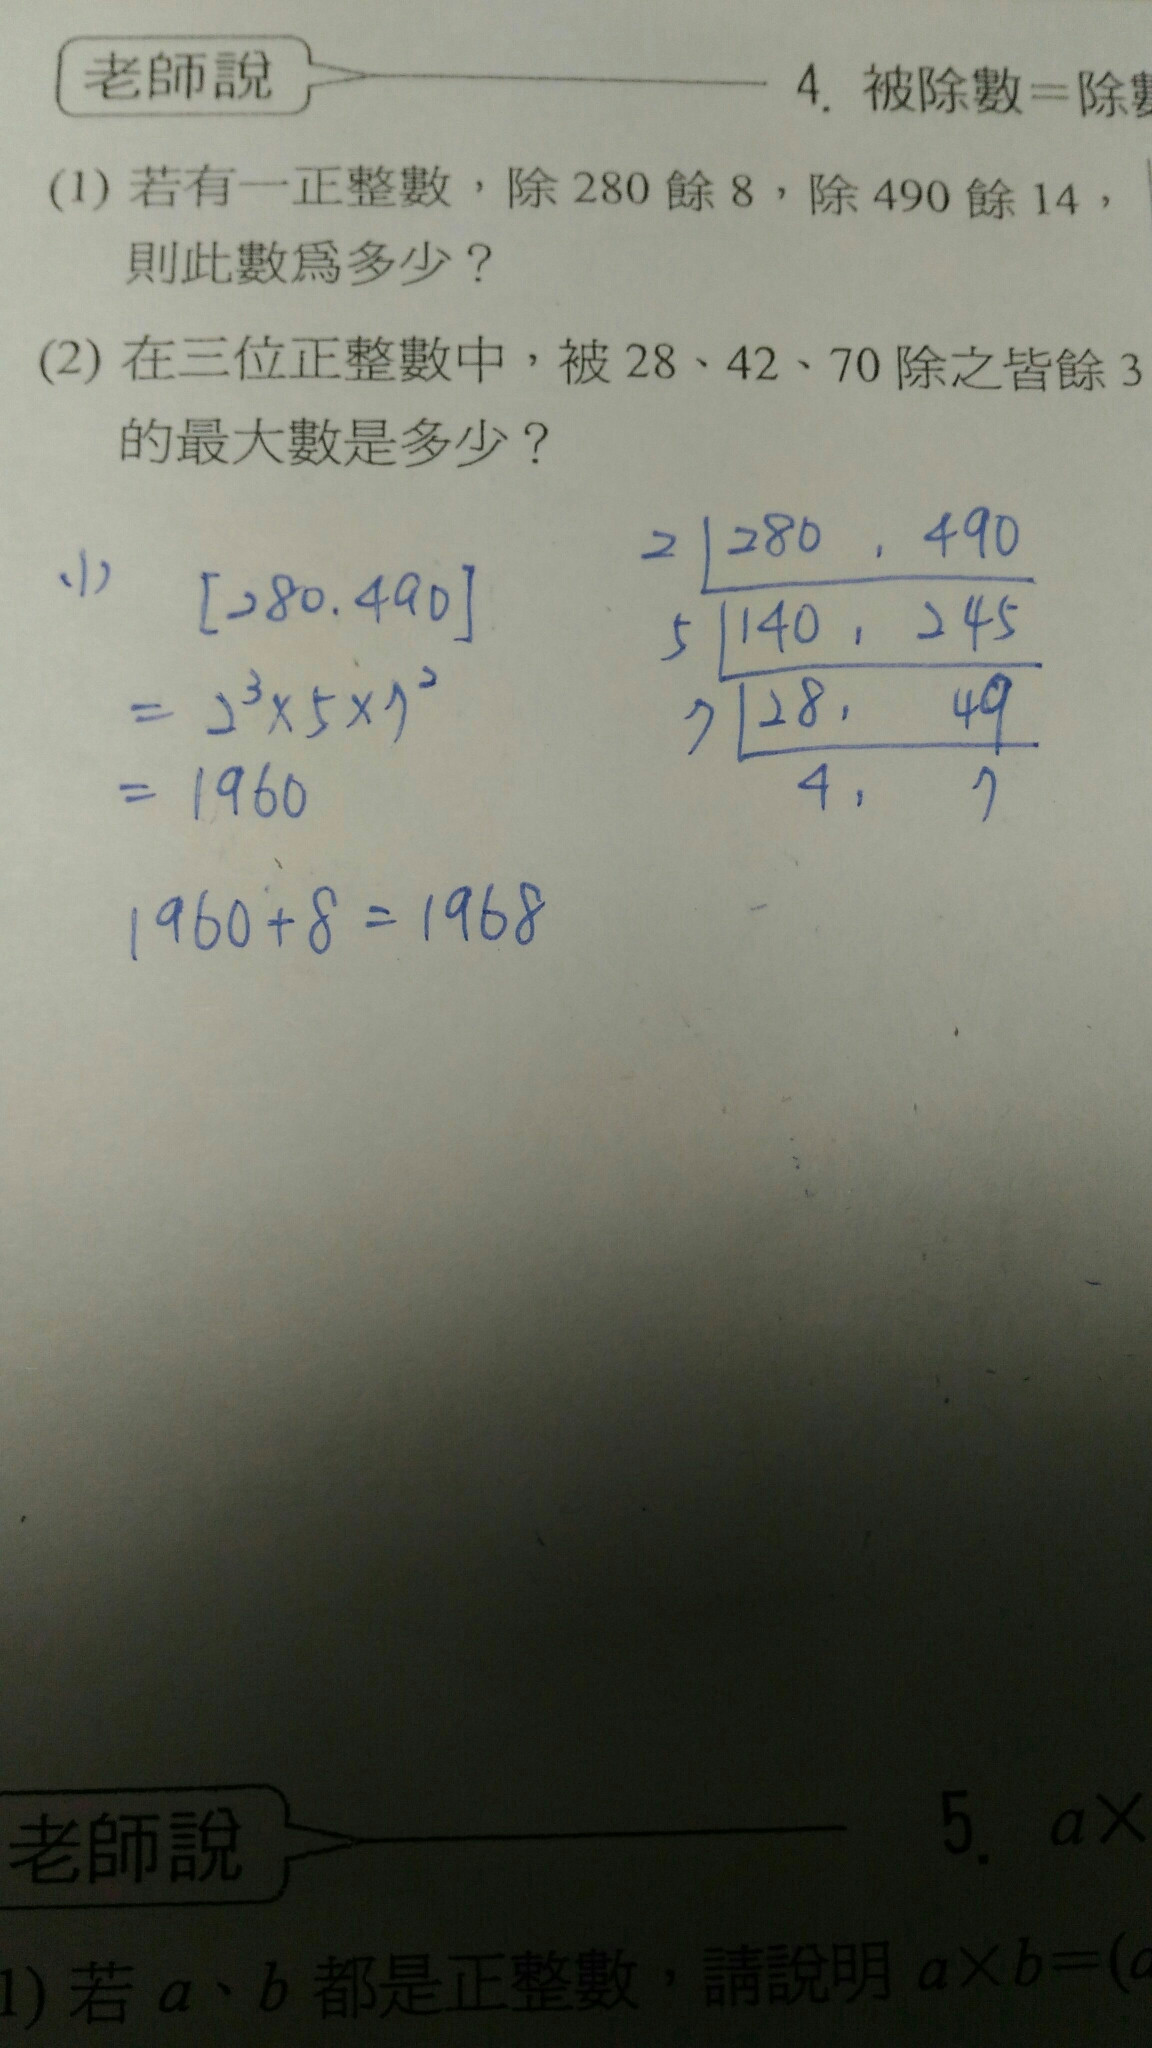 老師說
4. 被除數=除數
(1) 若有一正整數,除 280 餘 8,除 490 餘 14,
則此數為多少?
(2) 在三位正整數中,被 28、42、70 除之皆餘 3
的最大數是多少?
(1) [280.490]
= 2³×5×7²
= 1960
1960+8=1968
2 280 , 490
5 140 , 245
7 28, 49
4, 7
老師說
5. a×
1) 若 a、b 都是正整數,請說明 a×b=(a